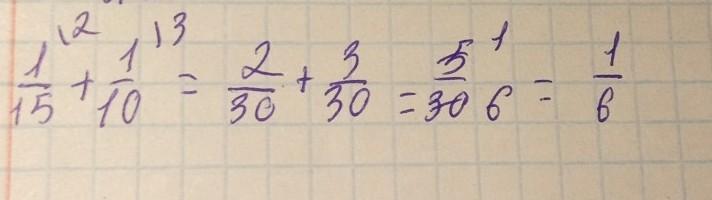 1/15 \2 + 1/10 \3 = 2/30 + 3/30 = 5/30 1 6 = 1/6